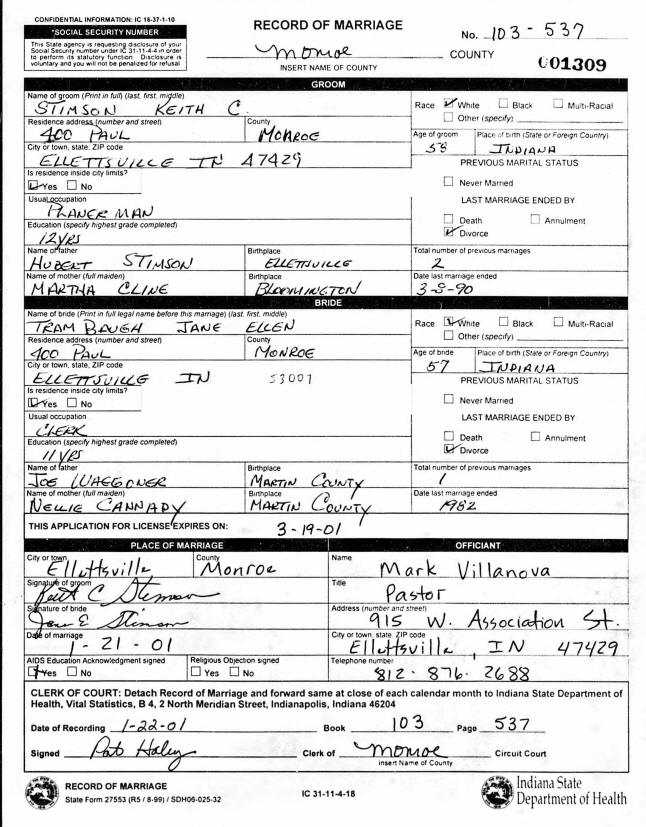 CONFIDENTIAL INFORMATION: IC 16-37-1-10
*SOCIAL SECURITY NUMBER
This State agency is requesting disclosure of your
Social Security number under IC 31-11-4-4 in order
to perform its statutory function. Disclosure is
voluntary and you will not be penalized for refusal
RECORD OF MARRIAGE
No. 103-537
Monroe COUNTY
INSERT NAME OF COUNTY
001309
GROOM
Name of groom (Print in full) (last, first, middle)
STIMSON KEITH C.
Race: White Black Multi-Racial
Other (specify)
Residence address (number and street) County
400 PAUL MONROE
Age of groom Place of birth (State or Foreign Country)
58 INDIANA
City or town, state, ZIP code
ELLETTSVILLE IN 47429
PREVIOUS MARITAL STATUS
Is residence inside city limits?
Yes No
Never Married
LAST MARRIAGE ENDED BY
Usual occupation
PLANER MAN
Death Annulment
Divorce
Education (specify highest grade completed)
12 YRS
Name of father Birthplace
HUBERT STIMSON ELLETTSVILLE
Total number of previous marriages
2
Name of mother (full maiden) Birthplace
MARTHA CLINE BLOOMINGTON
Date last marriage ended
3-8-90
BRIDE
Name of bride (Print in full legal name before this marriage) (last, first, middle)
TRAMBAUGH JANE ELLEN
Race: White Black Multi-Racial
Other (specify)
Residence address (number and street) County
400 PAUL MONROE
Age of bride Place of birth (State or Foreign Country)
57 INDIANA
City or town, state, ZIP code
ELLETTSVILLE IN 53001
PREVIOUS MARITAL STATUS
Is residence inside city limits?
Yes No
Never Married
LAST MARRIAGE ENDED BY
Usual occupation
CLERK
Death Annulment
Divorce
Education (specify highest grade completed)
11 YRS
Name of father Birthplace
JOE WAGGONER MARTIN COUNTY
Total number of previous marriages
1
Name of mother (full maiden) Birthplace
NELLIE CANNADY MARTIN COUNTY
Date last marriage ended
1982
THIS APPLICATION FOR LICENSE EXPIRES ON: 3-19-01
PLACE OF MARRIAGE
City or town County
Ellettsville Monroe
Signature of groom
Keith C Stimson
Signature of bride
Jane E Stimson
Date of marriage
1-21-01
AIDS Education Acknowledgment signed Religious Objection signed
Yes No Yes No
OFFICIANT
Name
Mark Villanova
Title
Pastor
Address (number and street)
915 W. Association St.
City or town, state, ZIP code
Ellettsville, IN 47429
Telephone number
812-876-2688
CLERK OF COURT: Detach Record of Marriage and forward same at close of each calendar month to Indiana State Department of
Health, Vital Statistics, B 4, 2 North Meridian Street, Indianapolis, Indiana 46204
Date of Recording 1-22-01 Book 103 Page 537
Signed Pat Haley Clerk of Monroe Circuit Court
Insert Name of County
RECORD OF MARRIAGE
State Form 27553 (R5 / 8-99) / SDH06-025-32
IC 31-11-4-18
Indiana State
Department of Health